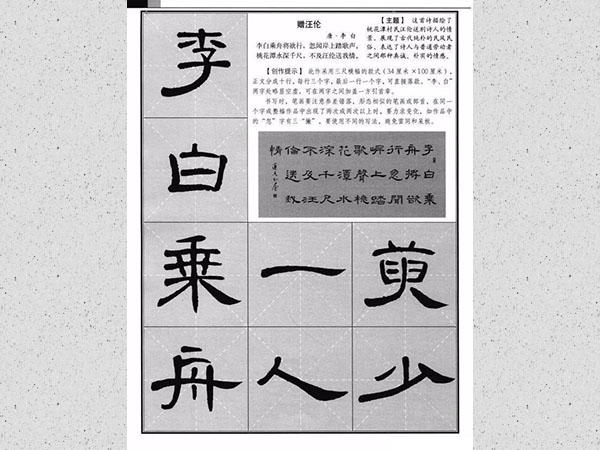 赠汪伦
唐·李白
李白乘舟将欲行，忽闻岸上踏歌声。
桃花潭水深千尺，不及汪伦送我情。
【主题】 这首诗描绘了
桃花潭村民汪伦送别诗人的情
景，展现了古代纯朴的民风民
俗，表达了诗人与普通劳动者
之间那种真诚、朴实的情感。
【创作提示】 此作采用三尺横幅的款式（34厘米×100厘米），
正文分成十行，每行三个字，最后一行一个字，可直接落款。“李、白”
两字处略显空虚，可在两字之间加盖一方引首章。
书写时，笔画要注意参差错落，形态相似的笔画或部首，在同一
个字或整幅作品中出现了两次或两次以上时，要力求变化，如作品中
的“忽”字有三“撇”，要使用不同的写法，避免雷同和呆板。
李白乘
舟將欲
行忽聞
岸上踏
歌聲桃
花潭水
深千尺
不及汪
倫送我
情
萸少
一人
李白乘舟